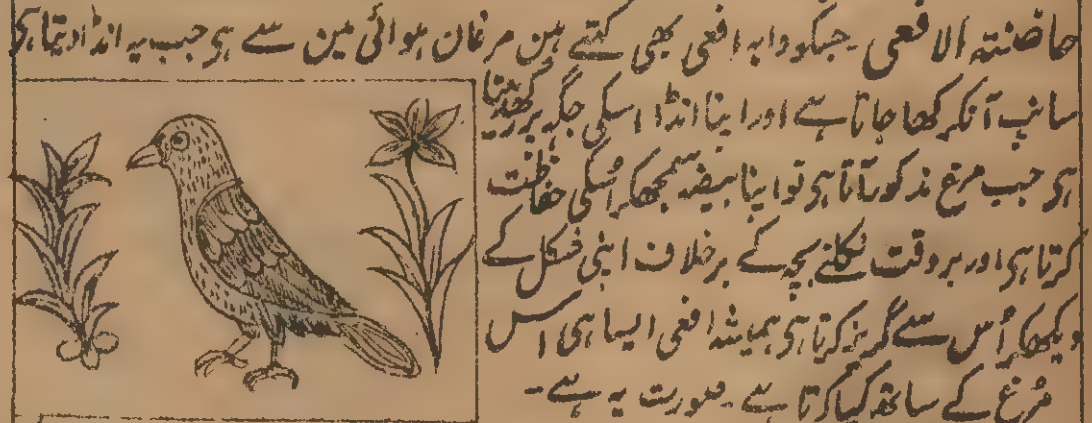 حاضنتہ الافعی ۔ جسکو دایہ افعی بھی کہتے ہین مرغان ہوائی مین سے ہی جب یہ انڈا دیتا ہی
سانپ آنکر کھا جاتا ہے اور اپنا انڈا اسکی جگہ پر رکھدیتا
ہی جب مرغ مذکور آتا ہی تو اپنا بیضہ سمجھکر اُسکی حفاظت
کرتا ہی اور بروقت نکلنے بچہ کے برخلاف اپنی شکل کے
دیکھکر اُس سے گریز کرتا ہی ہمیشہ افعی ایسا ہی اس
مرغ کے ساتھ کیا کرتا ہے ۔ صورت یہ ہے ۔